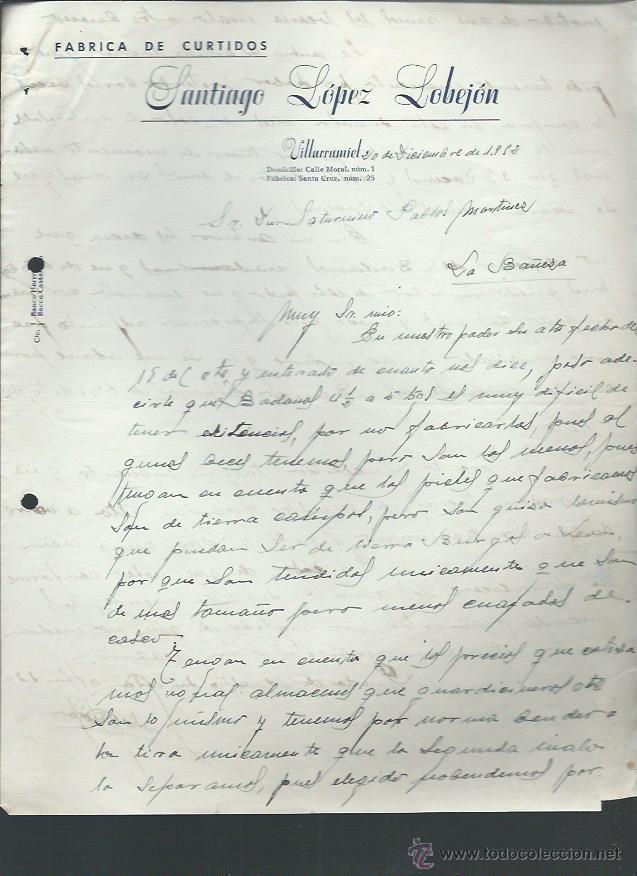 FABRICA DE CURTIDOS
Santiago López Lobejón
Villarramiel 20 de Diciembre de 1952
Domicilio: Calle Moral, núm. 1
Fábrica: Santa Cruz, núm. 25
Sr. Dn. Saturnino Pablos Martinez
La Bañeza
Banco Herre
Ctc.
Muy Sr. mio:
En nuestro poder su atª fecha de
15 del cte. y enterado de cuanto nos dice, paso a de-
cirle que Badanas 4½ a 5 es muy dificil de
tener existencias, por no fabricarlas, pues al
gunas veces tenemos, pero son las menos, pues
tengan en cuenta que las pieles que fabricamos
son de tierra campos, pero son quiza lo mismo
que puedan ser de tierra Burgos o Leon,
por que son tendidas unicamente que son
de mas tamaño pero menos de
casco
Tengan en cuenta que los precios que cotiza
mos a almacenes que guardicineros
son lo mismo y tenemos por norma bender a
la tira unicamente que la segunda mala
la separamos, pues elegido no bendemos por
www.todocoleccion.net